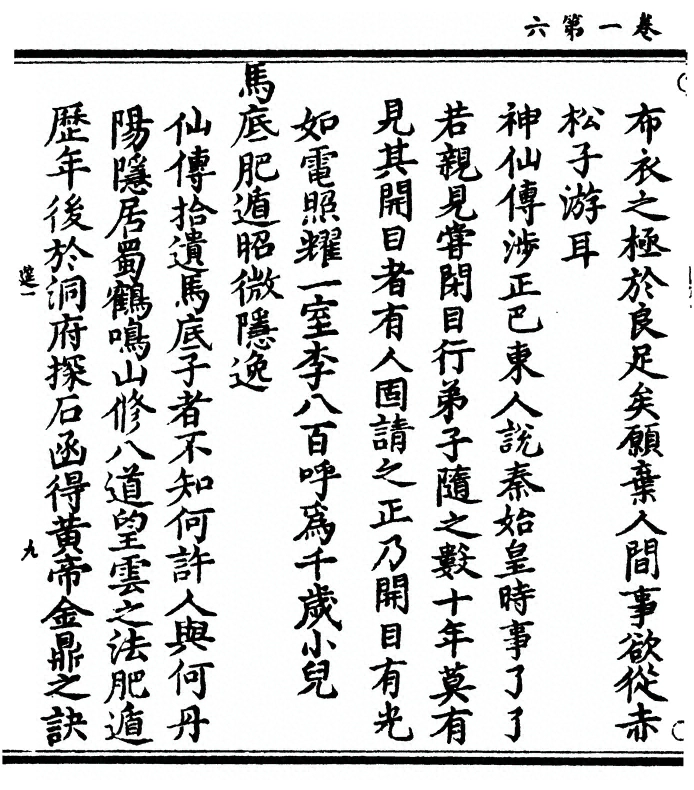 卷一第六
布衣之極於良足矣願棄人間事欲從赤
松子游耳
神仙傳涉正巴東人說秦始皇時事了了
若親見嘗閉目行弟子隨之數十年莫有
見其開目者有人固請之正乃開目有光
如電照耀一室李八百呼爲千歲小兒
馬底肥遁昭微隱逸
仙傳拾遺馬底子者不知何許人與何丹
陽隱居蜀鶴鳴山修八道望雲之法肥遁
歷年後於洞府探石函得黃帝金鼎之訣
九